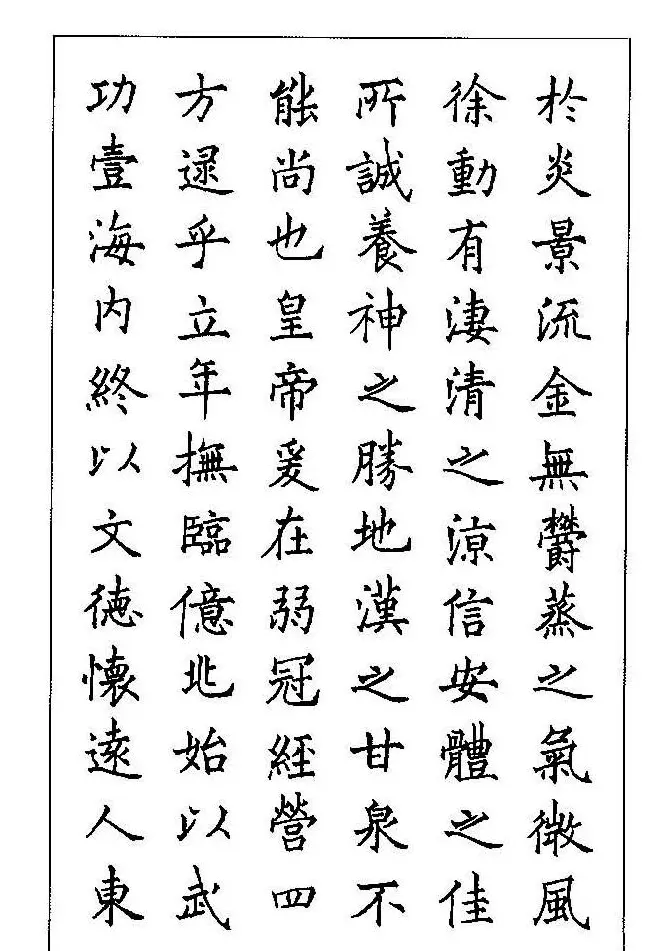 於炎景流金無鬱蒸之氣微風
徐動有淒清之涼信安體之佳
所誠養神之勝地漢之甘泉不
能尚也皇帝爰在弱冠經營四
方逮乎立年撫臨億兆始以武
功壹海內終以文德懷遠人東